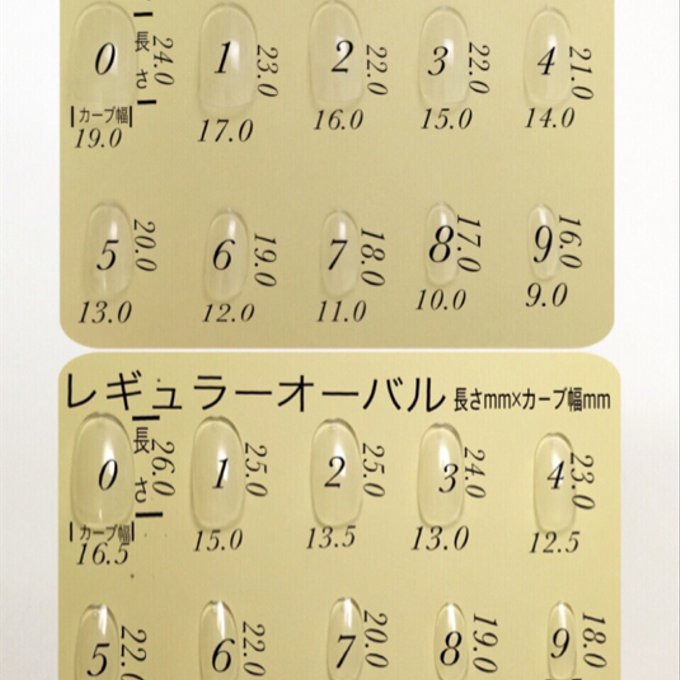 0 長さ 24.0 1 23.0 2 22.0 3 22.0 4 21.0
カーブ幅
19.0 17.0 16.0 15.0 14.0
5 20.0 6 19.0 7 18.0 8 17.0 9 16.0
13.0 12.0 11.0 10.0 9.0
レギュラーオーバル 長さmm×カーブ幅mm
0 長さ 26.0 1 25.0 2 25.0 3 24.0 4 23.0
カーブ幅
16.5 15.0 13.5 13.0 12.5
5 22.0 6 22.0 7 20.0 8 19.0 9 18.0